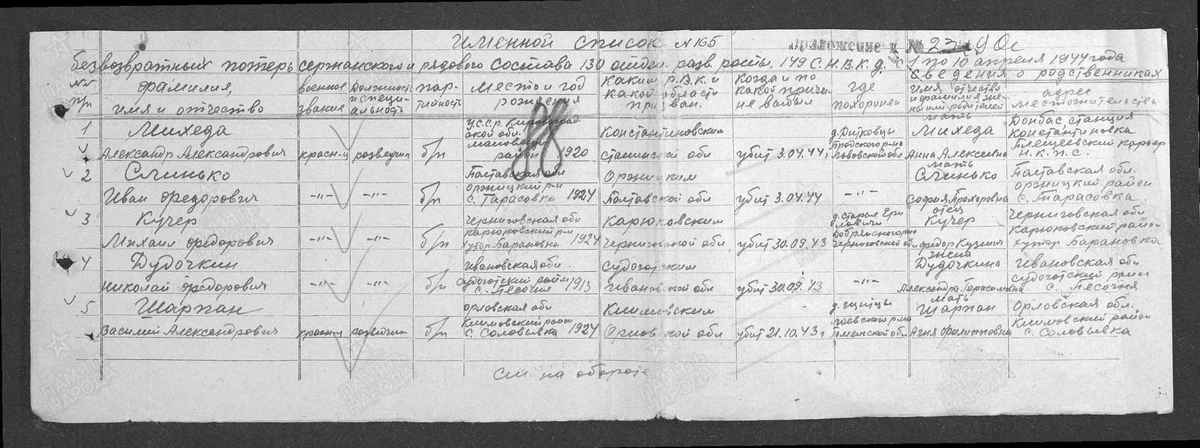 Именной список №165
Приложение к № 2390с
безвозвратных потерь сержанского и рядового состава 130 отдел. разв роты, 149 С.Н.В.К.д. с 1 по 10 апреля 1944 года
№№ п/п фамилия, имя и отчество военное звание должность и специальность партийность место и год рождения каким Р.В.К. и какой области призван. когда и по какой причине выбыл где похоронен сведения о родственниках имя, отчество и фамилия адрес местожительства
1 Михеда Александр Александрович красн-ц разведчик б/п район 1920 Константиновским Сталинской обл убит 3.04.44г. Львовской обл мать Михеда Анна Алексеевна Донбас станция Константиновка Плещеевский карьер Н.К.П.С.
2 Слинько Иван Федорович -"- -"- б/п Полтавская обл оржицкий р-н с. Тарасовка 1924 Оржицким Полтавской обл убит 3.04.44 -"- мать Слинько София Прохоровна Полтавская обл. оржицкий район с. Тарасовка
3 Кучер Михаил Федорович -"- -"- б/п Черниговская обл карюковский р-н хутор Барановка 1924 Карюковским Черниговской обл. убит 30.09.43 Черниговской обл отец Кучер Федор Кузьмич Черниговская обл. Карюковский район хутор Барановка
4 Дудочкин Николай Федорович -"- -"- б/п Ивановская обл. Судоготский район с. Лесочня 1913 Судоготским Ивановской обл убит 30.09.43 -"- жена Дудочкина Александра Герасимовна Ивановская обл. судоготский район с. Лесочня
5 Шарпан Василий Александрович красн-ц разведчик б/п орловская обл Климовский район с. Соловьевка 1924 Климовским Орловской обл убит 21.10.43г. Гомельской обл мать Шарпан Агния Филипповна Орловская обл. Климовский район с. Соловьевка
см на обороте
ПАМЯТЬ НАРОДА